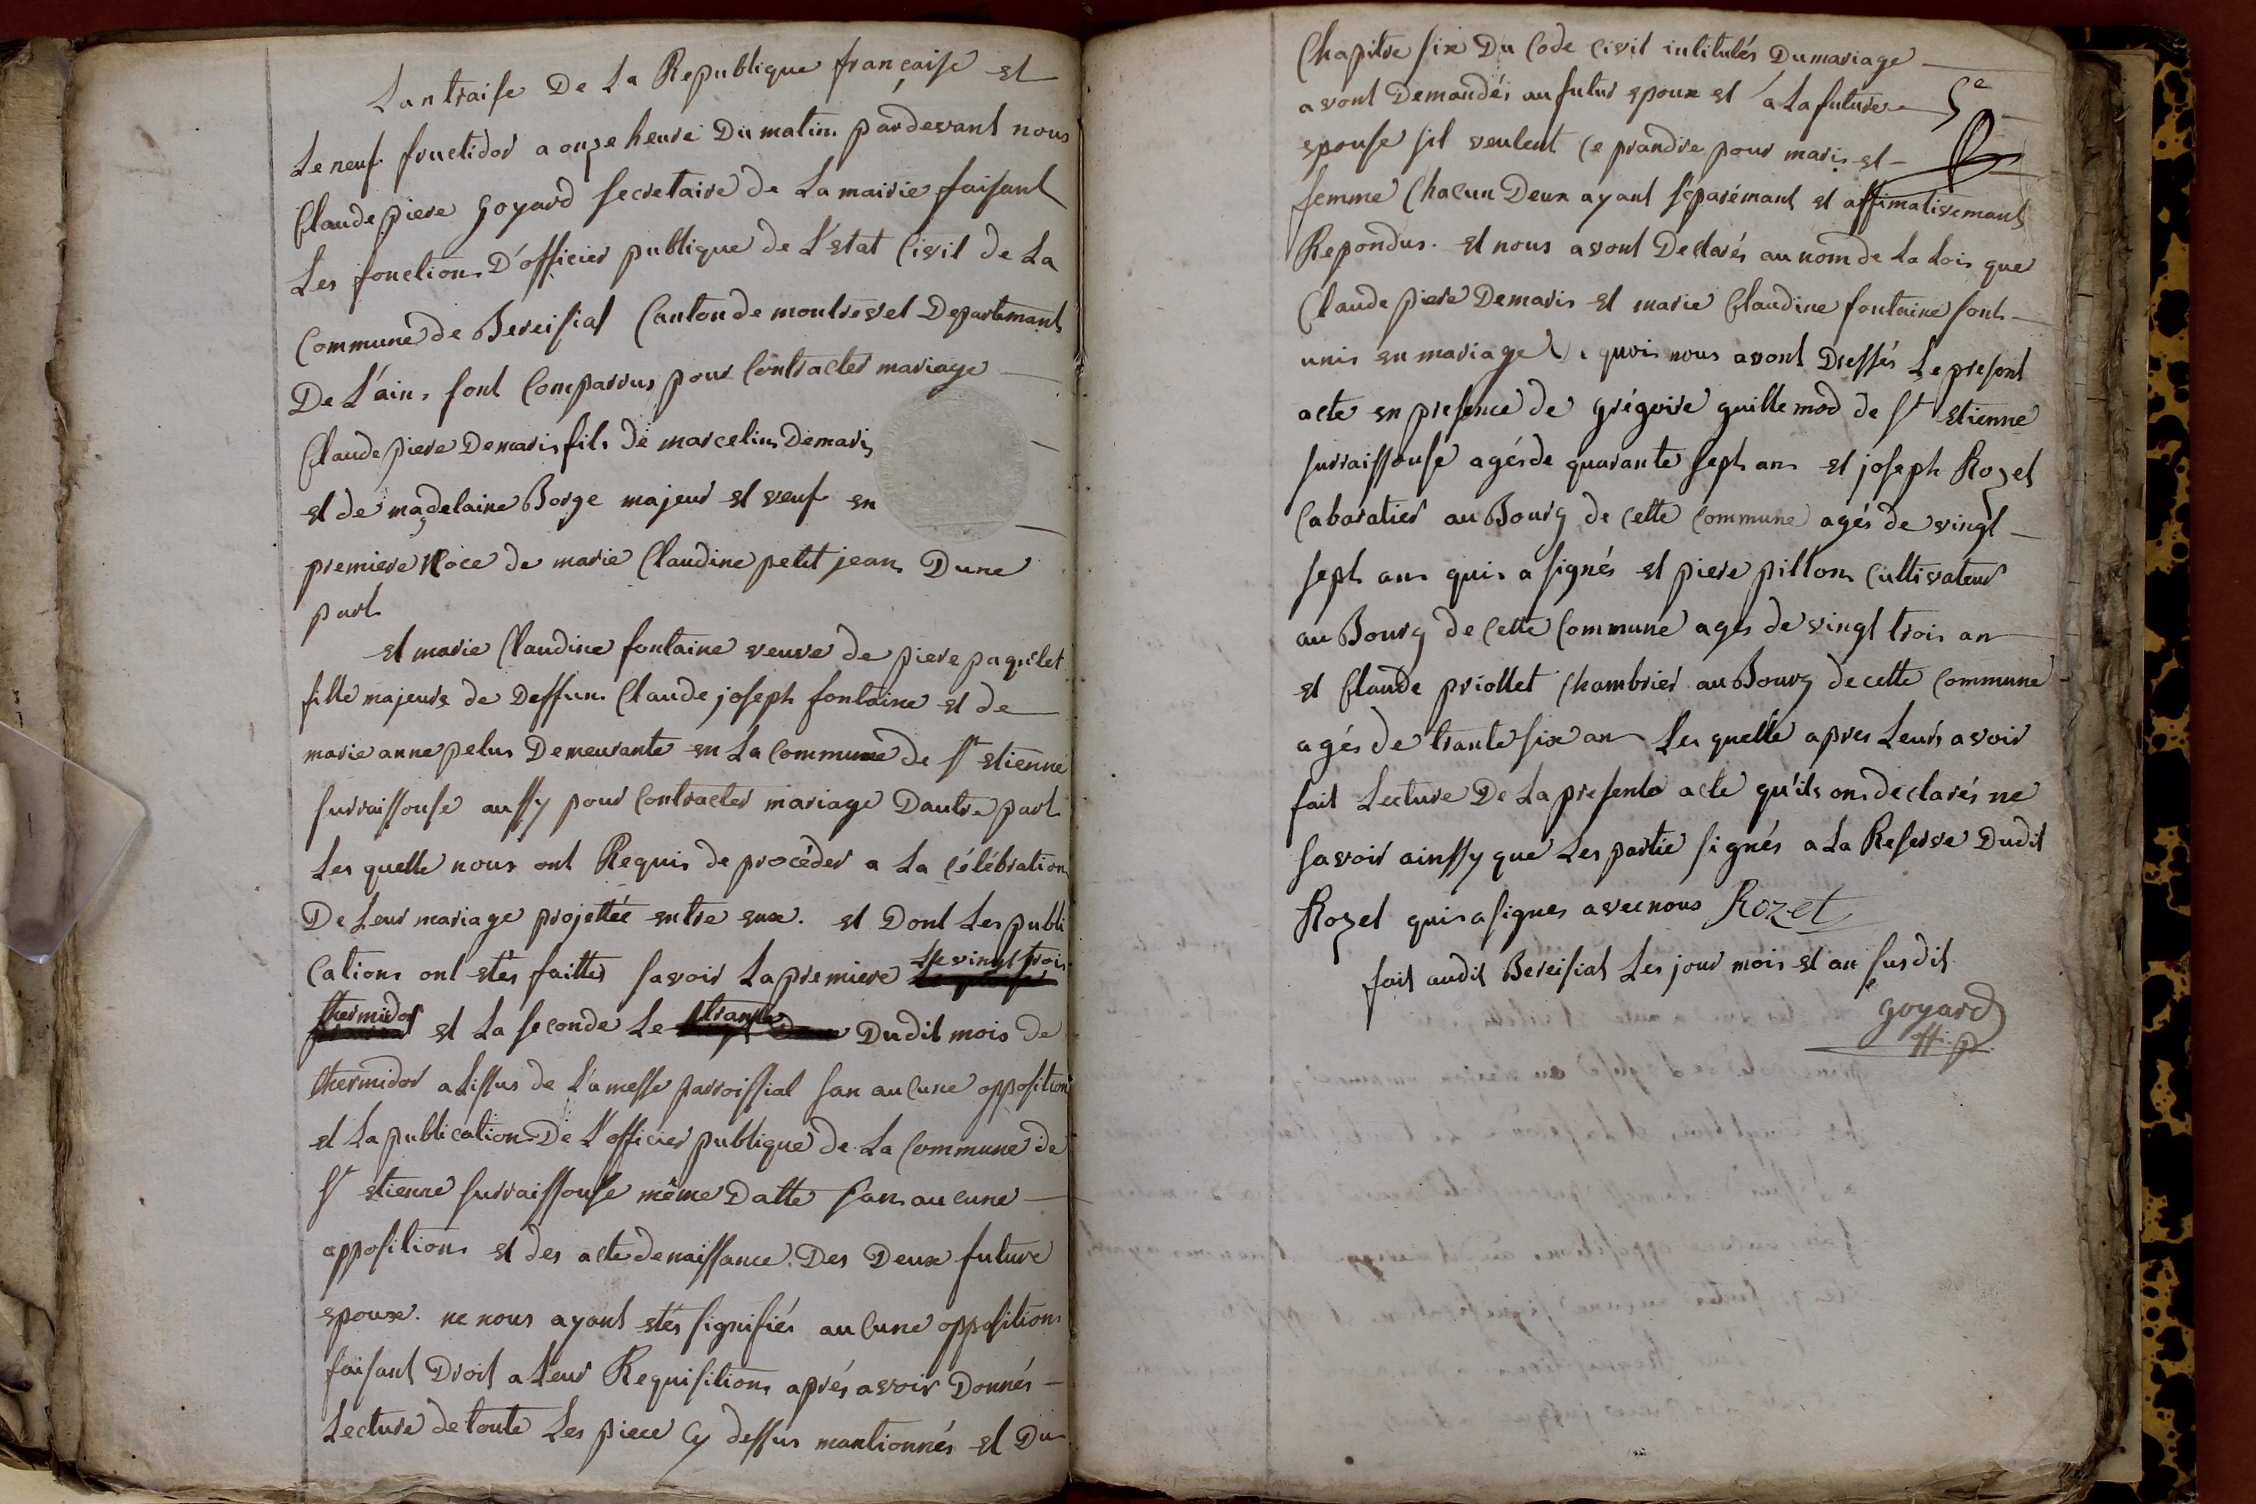 Lan traise De La Republique française et
Le neuf fructidor a onze heure Du matin pardevant nous
Claude piere Goyard secretaire de La mairie faisant
Les fonctions D'officier publique de L'estat Civil de La
Commune de Bereisiat Canton de montrevel Departemant
De L'ain, sont Comparrus pour Contracter mariage
Claude piere Demaris fils de marcelin Demaris
et de magdelaine Borge majeur et veuf en
premiere Noce de marie Claudine petit jean Dune
part
et marie Claudine fontaine veuve de piere paquelet
fille majeure de Deffun Claude joseph fontaine et de
marie anne pelus Demeurante en La Commune de St etienne
surraissouse aussy pour Contracter mariage Dautre part
Les quelle nous ont Requis de procéder a La Célébration
De Leur mariage projettée entre eux. et Dont Les publi
Cations ont etés faittes savoir La premiere Le vingt trois
thermidor et La seconde Le trante Dudit mois de
thermidor a Lissus de La messe parroissial san au Cune opposition
et La publication De L'officier publique de La Commune de
St etienne surraissouse même Datte san aucune
opposition et des acte de naissance Des Deux future
epoux. ne nous ayant etés signifiés au Cune opposition
faisant Droit a Leur Requisition aprés avoir Donnés
Lecture de toute Les piece Cy dessus mantionnés et Du
Chapitre six Du Code Civil intitulés Du mariage
avont Demandés au futur epoux et a La future
5e
epouse sil veulent Ce prandre pour maris et
femme Chacun Deux ayant séparémant et affimativemant
Repondus. et nous avont Declarés au nom de La Loi que
Claude piere Demaris et marie Claudine fontaine sont
unis en mariage quoi nous avont Dressés Le present
acte en presence de grégoire guillemod de St etienne
surraissouse agés de quarante sept an et joseph Rozet
Cabaratier au Bourg de cette Commune agés de vingt
sept an qui a signés et piere pillon Cultivateur
au Bourg de Cette Commune agés de vingt trois an
et Claude priollet Chambrier au Bourg de cette Commune
agés de trante six an Les quelle apres Leurs avoir
fait Lecture De La presente acte qu'ils on declarés ne
savoir ainssy que Les partie signés a La Reserve Dudit
Rozet qui a signes avec nous Rozet
fait audit Bereisiat Les jour mois et an susdit
goyard
offi. p.